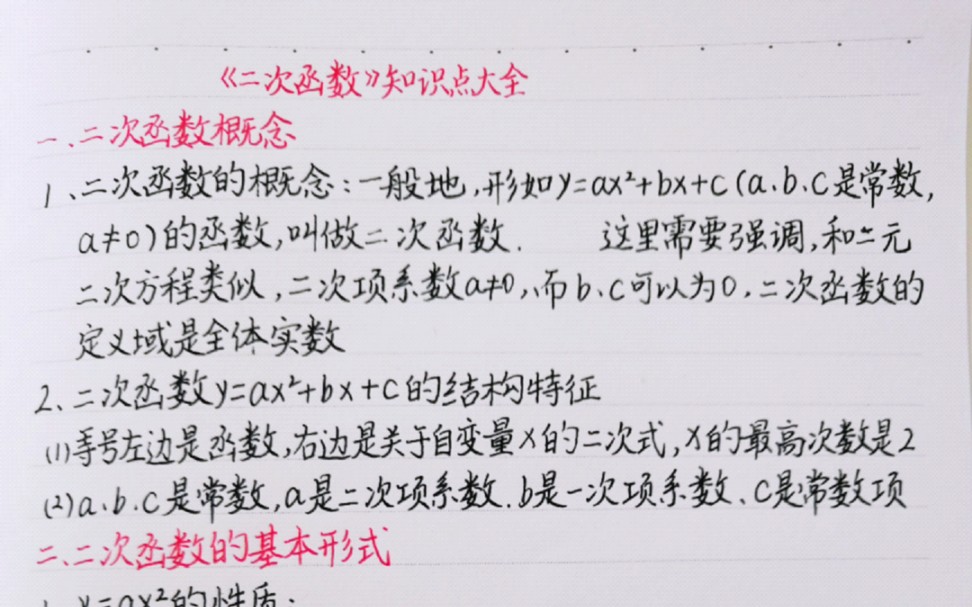 《二次函数》知识点大全
一、二次函数概念
1、二次函数的概念:一般地,形如y=ax²+bx+c(a、b、c是常数,
a≠0)的函数,叫做二次函数. 这里需要强调,和二元
二次方程类似,二次项系数a≠0,而b、c可以为0.二次函数的
定义域是全体实数
2、二次函数y=ax²+bx+c的结构特征
(1)等号左边是函数,右边是关于自变量x的二次式,x的最高次数是2
(2)a、b、c是常数,a是二次项系数.b是一次项系数、c是常数项
二、二次函数的基本形式
1、y=ax²的性质: